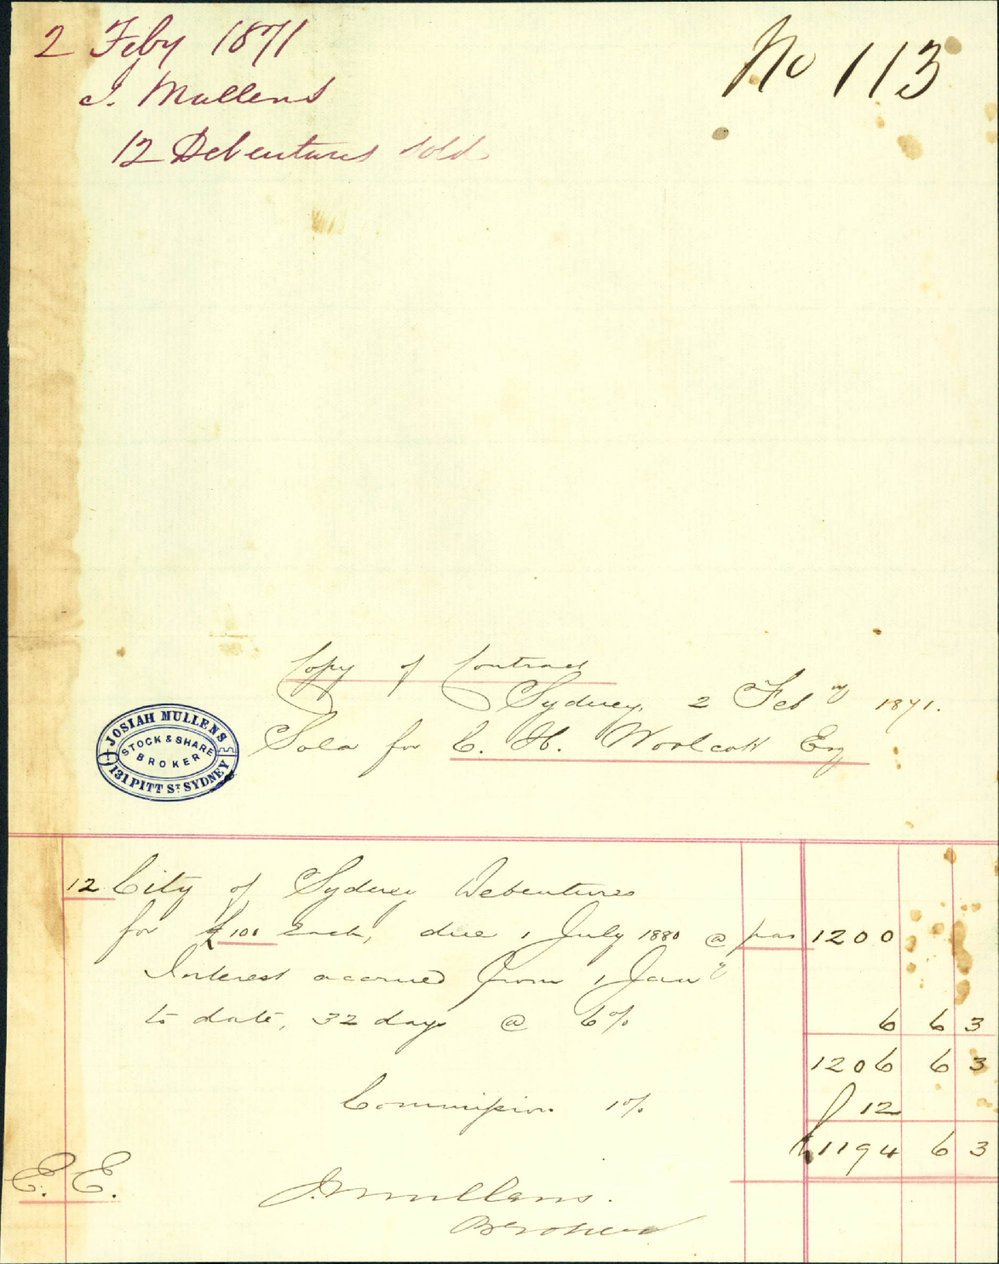 2 Feby 1871
J. Mullens
12 Debentures sold
No 113
Copy of Contract
Sydney, 2 Feby 1871.
Sold for C. H. Woolcott Esq
JOSIAH MULLENS
STOCK & SHARE
BROKER
131 PITT ST SYDNEY
12 City of Sydney Debentures
for £100 each, due 1 July 1880 @ par 1200
Interest accrued from 1 Jany
to date, 32 days @ 6% 6 6 3
1206 6 3
Commission 1% 12
£1194 6 3
E. E.
J Mullens.
Broker